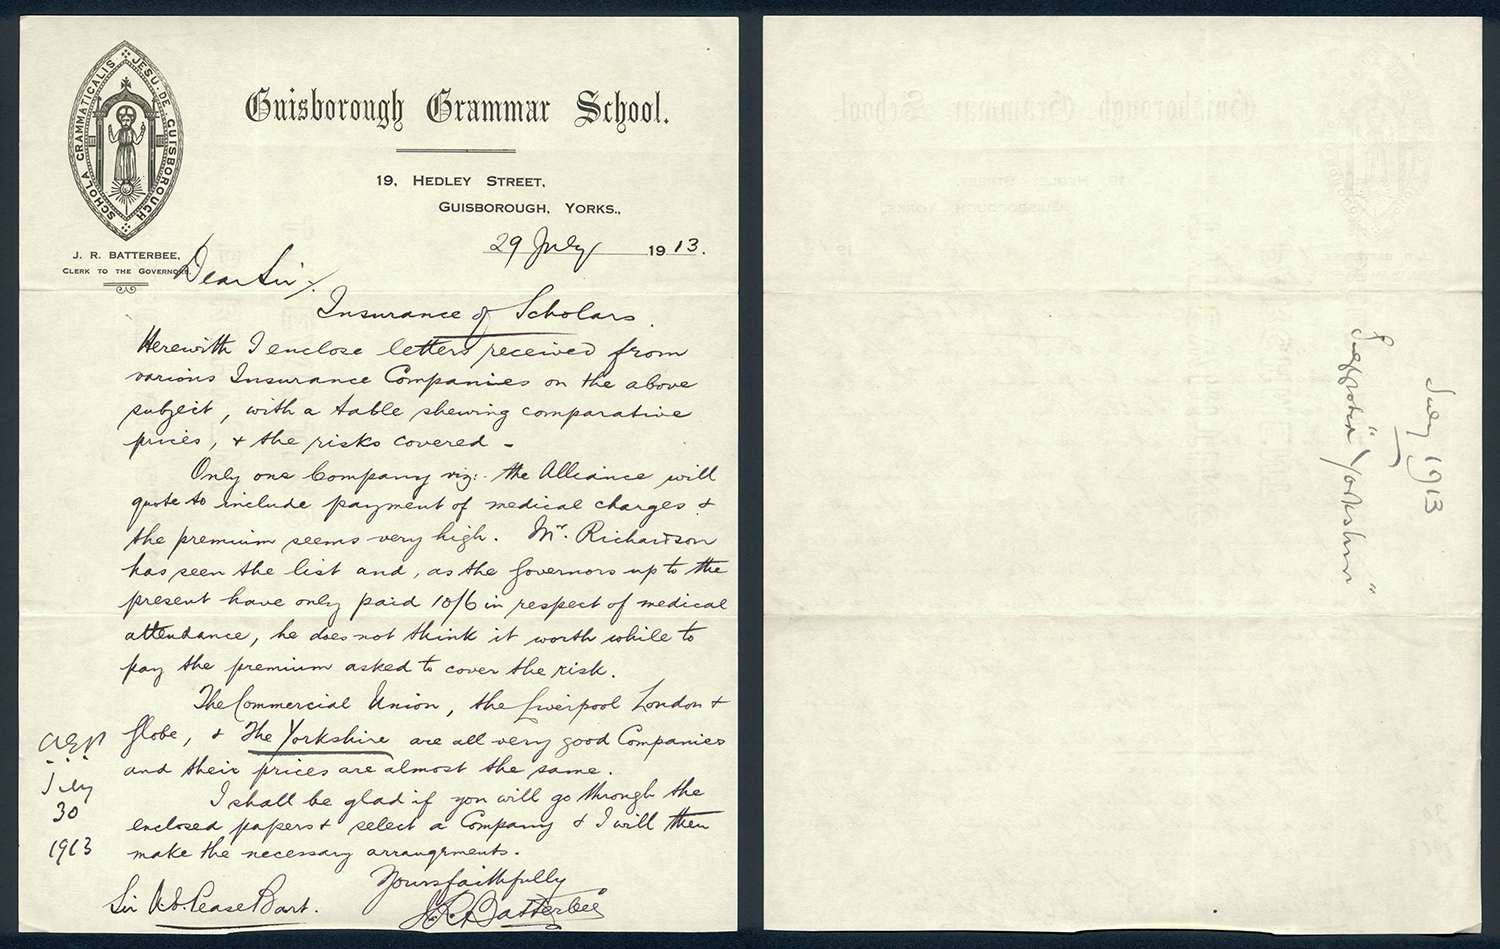 SCHOLA GRAMMATICALIS JESU. DE GUISBOROUGH
Guisborough Grammar School.
19, HEDLEY STREET,
GUISBOROUGH, YORKS.,
29 July 1913.
J. R. BATTERBEE,
CLERK TO THE GOVERNORS.
Dear Sir/.
Insurance of Scholars.
Herewith I enclose letters received from
various Insurance Companies on the above
subject, with a table shewing comparative
prices, & the risks covered -
Only one Company viz:- the Alliance will
quote to include payment of medical charges &
the premium seems very high. Mr. Richardson
has seen the list and, as the Governors up to the
present have only paid 10/6 in respect of medical
attendance, he does not think it worth while to
pay the premium asked to cover the risk.
The Commercial Union, the Liverpool London &
Globe, & The Yorkshire are all very good Companies
and their prices are almost the same.
I shall be glad if you will go through the
enclosed papers & select a Company & I will then
make the necessary arrangements.
Yours faithfully
J. R. Batterbee
Sir A. E. Pease Bart.
AEP
July
30
1913
July 1913
"Yorkshire"